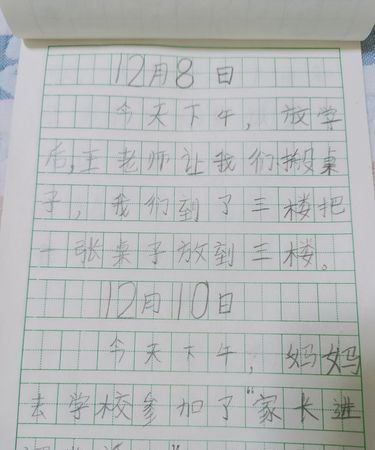 12月8日
今天下午，放学
后,王老师让我们搬桌
子，我们到了三楼把
一张桌子放到三楼。
12月10日
今天下午，妈妈
去学校参加了“家长进